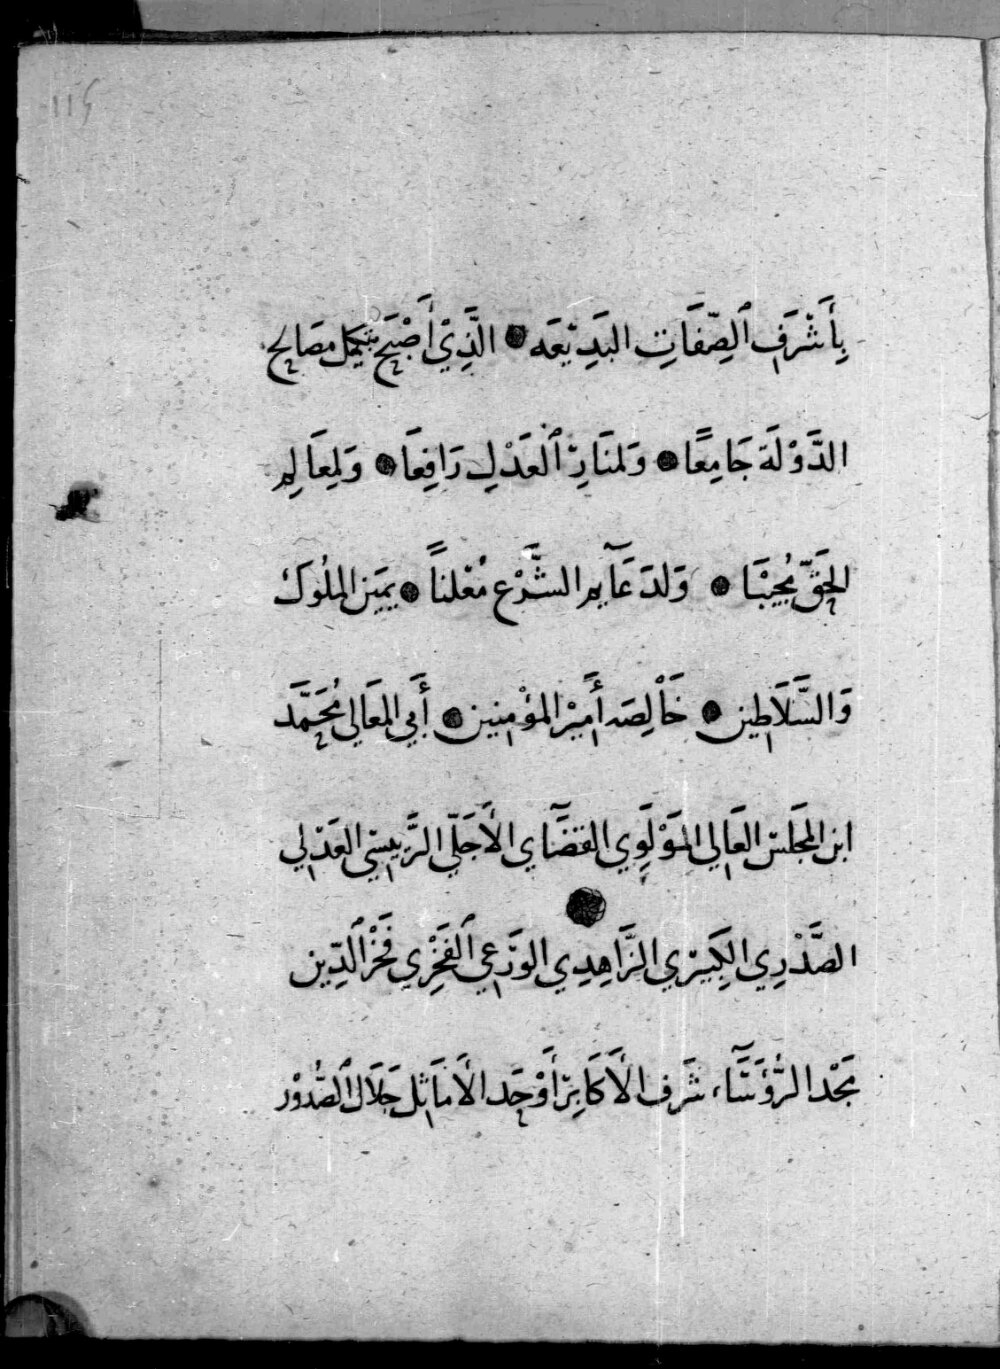 ١١٤
بِأَشْرَفِ ٱلصِّفَاتِ البَدِيْعَه ● الَّذِيْ أَصْبَحَ بتكمل مصَالِح
الدَّوْلَة جَامِعًا ● وَلمنَارِ ٱلْعَدْلِ رَافِعَا ● وَلمعَالِمِ
الحَقّ مُحِيْبَا ● وَلدَعَآيم الشَّرْع مُعْلناً ● يمَين الملُوك
وَالسَّلَاطِين ● خَاْلِصَه أَمِيْر المؤْمِنين ● أَبي المعَالي مُحَمَّد
ابن المجَلس العَالي المَوْلَوِي القضَآي الأَجَلّي الرَّييسي العَدْلي
الصَّدْرِي الكَبِيْري الزَّاهِدِي الوَرَعِي ٱلفَخْرِي فَخْر ٱلدِّين
مَجْد الرُّؤَسَآء شَرَف الأَكَابِر أَوْحَد الأَمَاثِل جَلَال ٱلصُّدُوْر